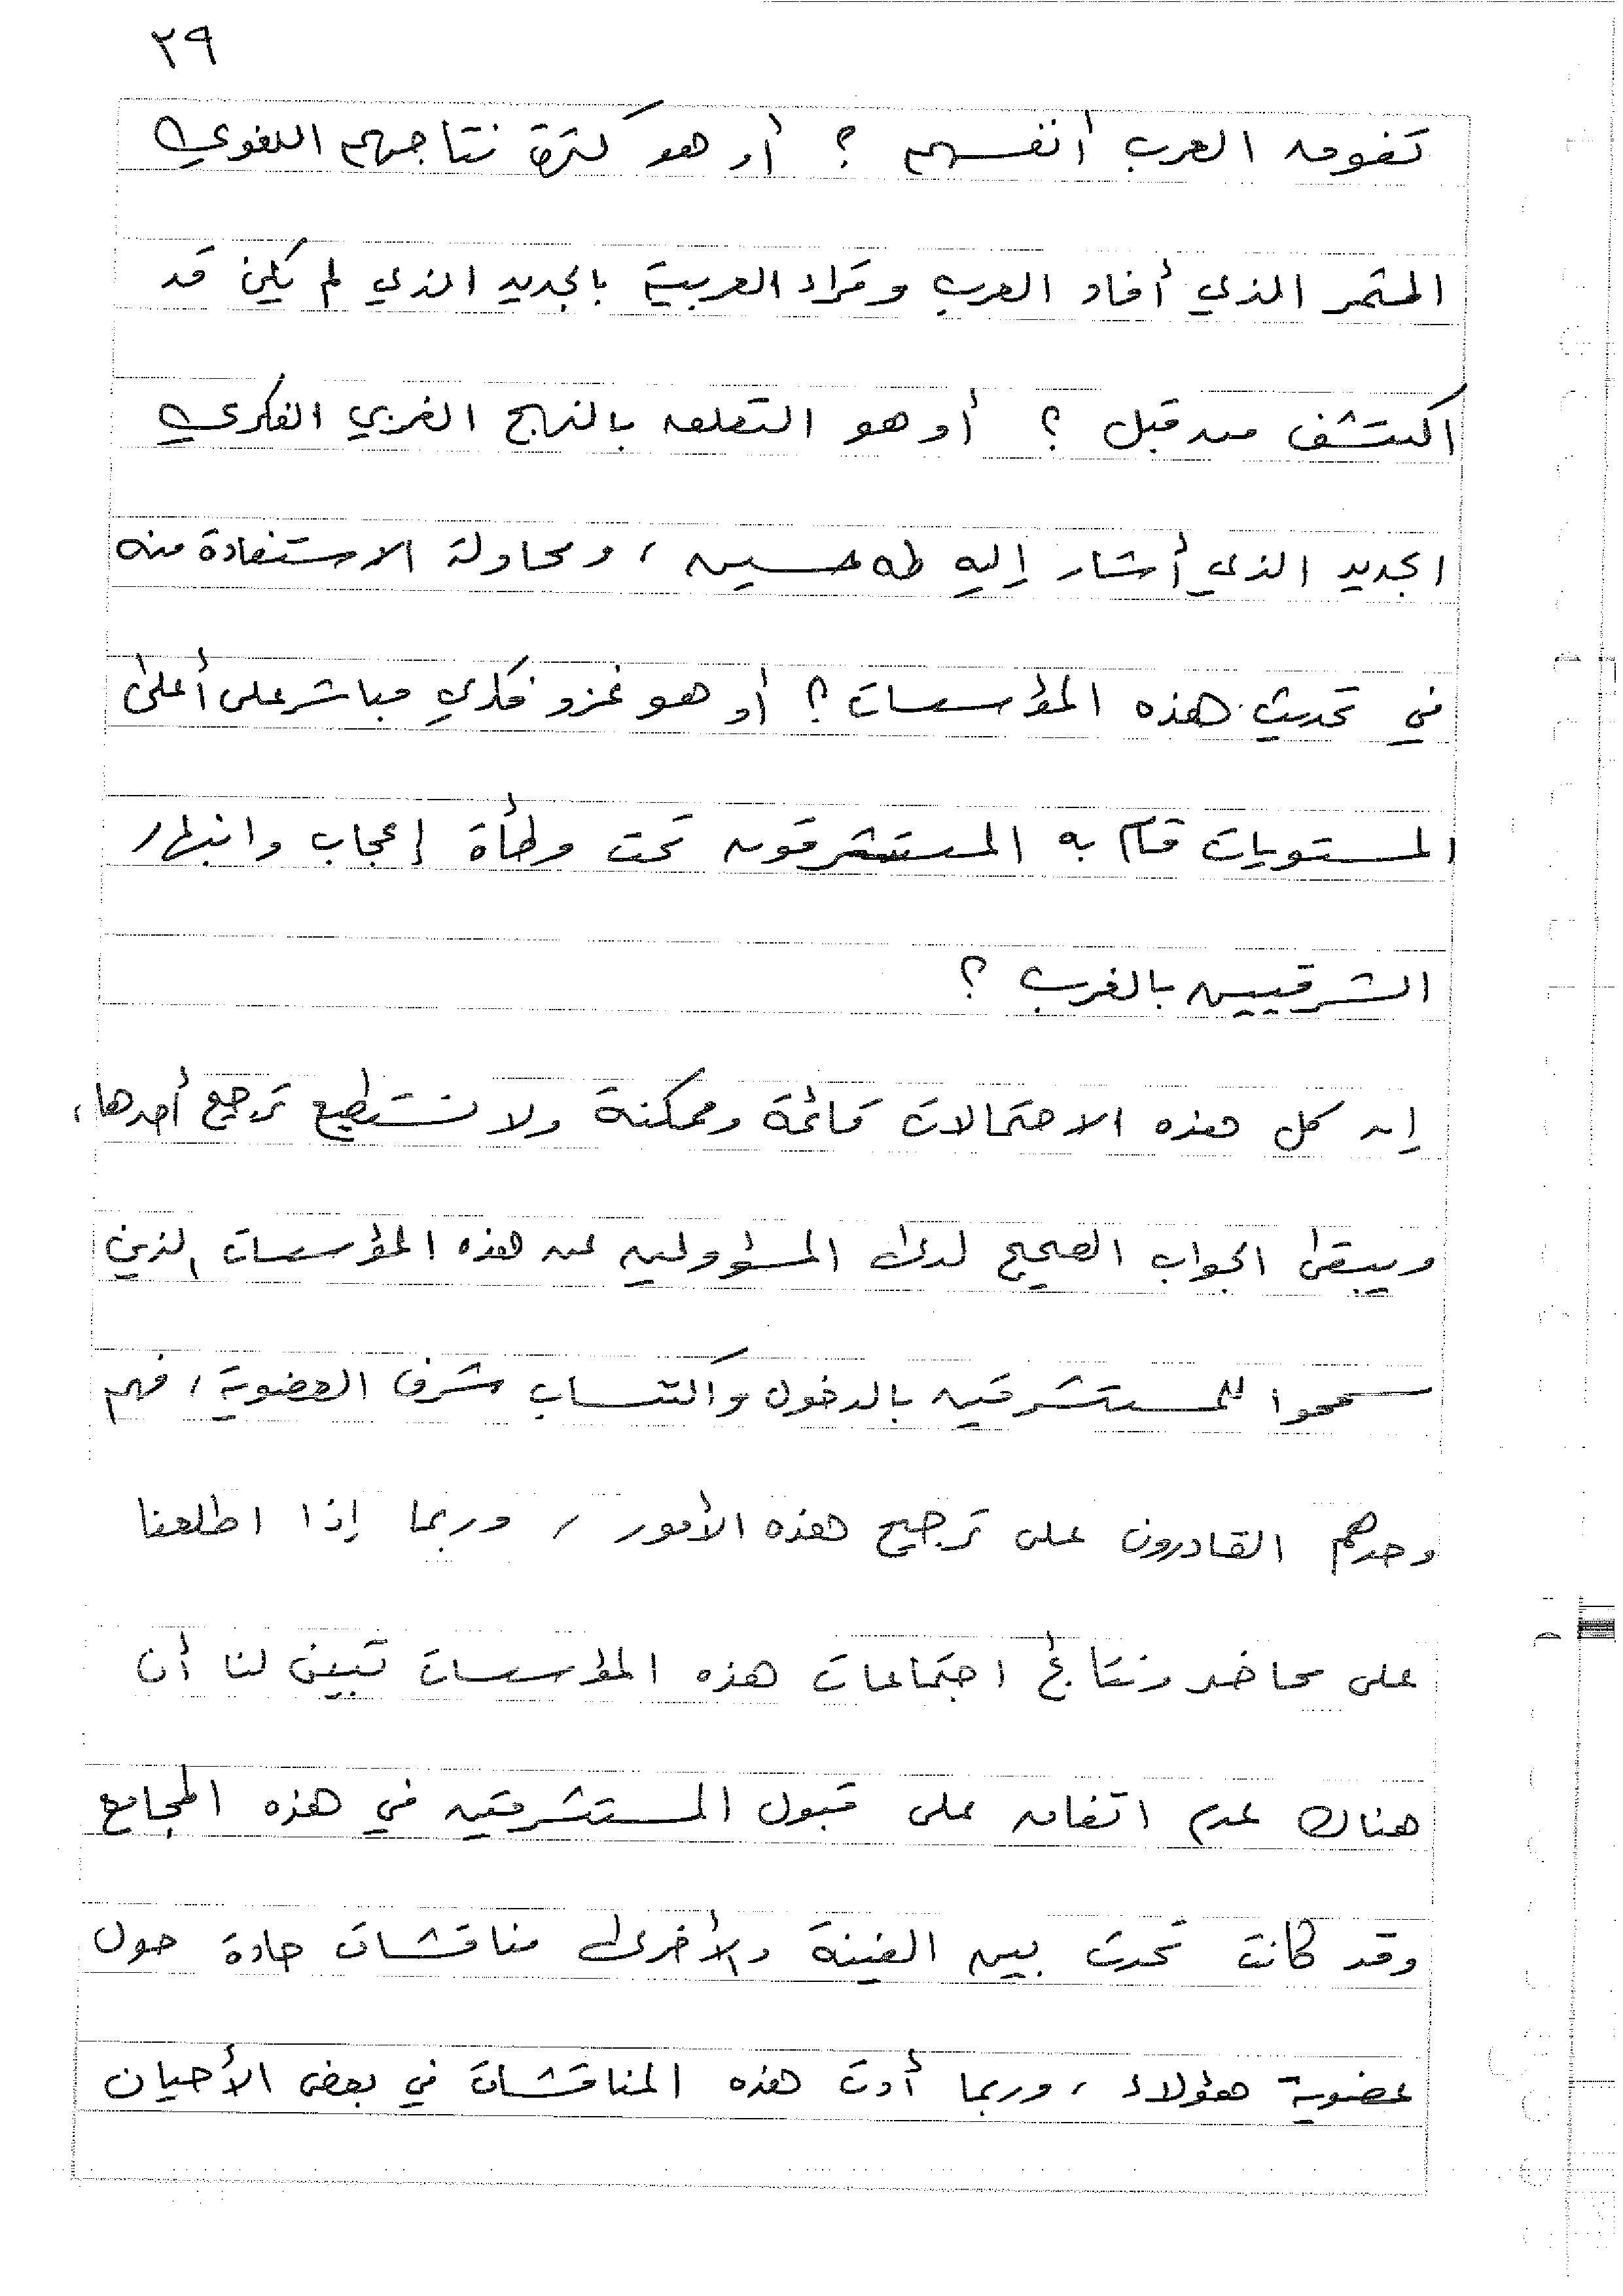 ٢٩
تفوق العرب أنفسهم ؟ أو هو كثرة نتاجهم اللغوي
المثمر الذي أفاد العرب وقراء العربية بالجديد الذي لم يكن قد
اكتشف من قبل ؟ أو هو التعلق بالنهج الغربي الفكري
الجديد الذي أشار إليه طه حسين ، ومحاولة الاستفادة منه
في تحديث هذه المؤسسات ؟ أو هو غزو فكري مباشر على أعلى
المستويات قام به المستشرقون تحت وطأة إعجاب وانبهار
الشرقيين بالغرب ؟
إن كل هذه الاحتمالات قائمة وممكنة ولا نستطيع ترجيح أحدها ،
ويبقى الجواب الصحيح لدى المسؤولين عن هذه المؤسسات الذين
سمحوا للمستشرقين بالدخول واكتساب شرف العضوية ، فهم
وحدهم القادرون على ترجيح هذه الأمور ، وربما إذا اطلعنا
على محاضر ونتائج اجتماعات هذه المؤسسات تبين لنا أن
هناك عدم اتفاق على قبول المستشرقين في هذه المجامع
وقد كانت تحدث بين الفينة والأخرى مناقشات حادة حول
عضوية هؤلاء ، وربما أدت هذه المناقشات في بعض الأحيان